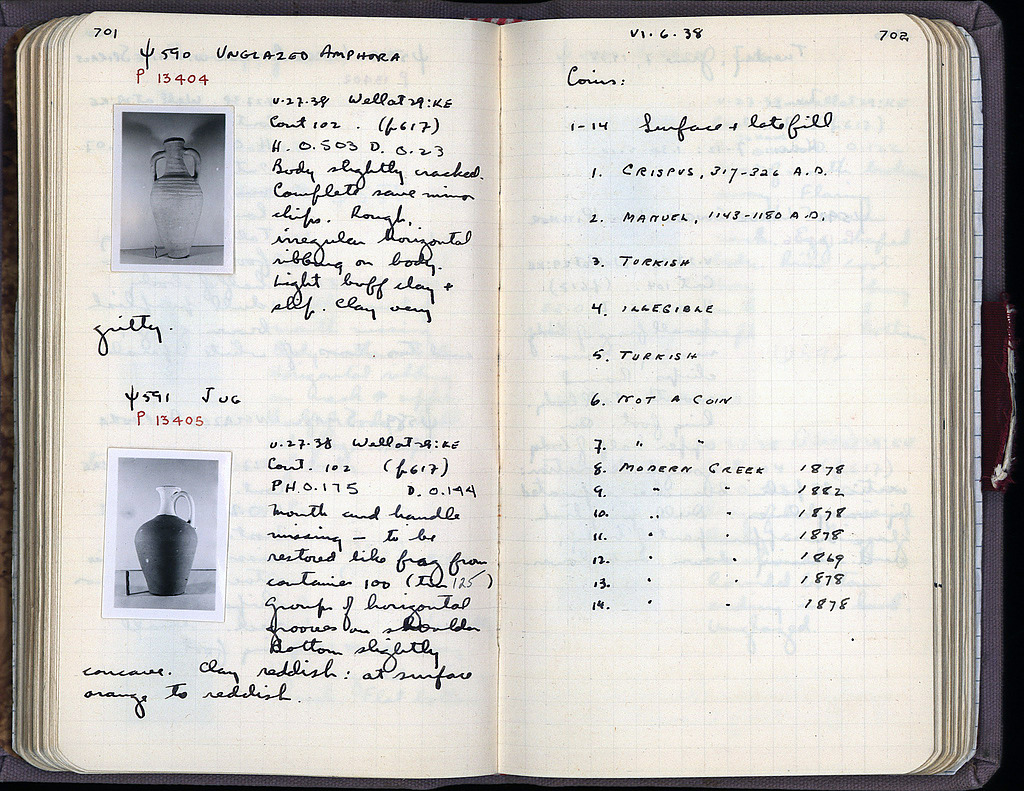 701
ψ 590 UNGLAZED AMPHORA
P 13404
V.27.38 Well at 29:ΚΕ
Cont 102. (p617)
H. 0.503 D. 0.23
Body slightly cracked.
Complete save minor
chips. Rough,
irregular horizontal
ribbing on body.
Light buff clay +
slip. Clay very
gritty.
ψ 591 JUG
P 13405
V.27.38 Well at 29:ΚΕ
Cont. 102 (p617)
PH. 0.175 D. 0.144
Mouth and handle
missing — to be
restored like frag from
container 100 (tin 125)
Groups of horizontal
grooves on shoulder
Bottom slightly
concave. Clay reddish: at surface
orange to reddish.
VI.6.38
702
Coins:
1-14 Surface + late fill
1. CRISPUS, 317-326 A.D.
2. MANUEL, 1143-1180 A.D.
3. TURKISH
4. ILLEGIBLE
5. TURKISH
6. NOT A COIN
7. " "
8. MODERN GREEK 1878
9. " " 1882
10. " " 1878
11. " " 1878
12. " " 1869
13. " " 1878
14. " " 1878